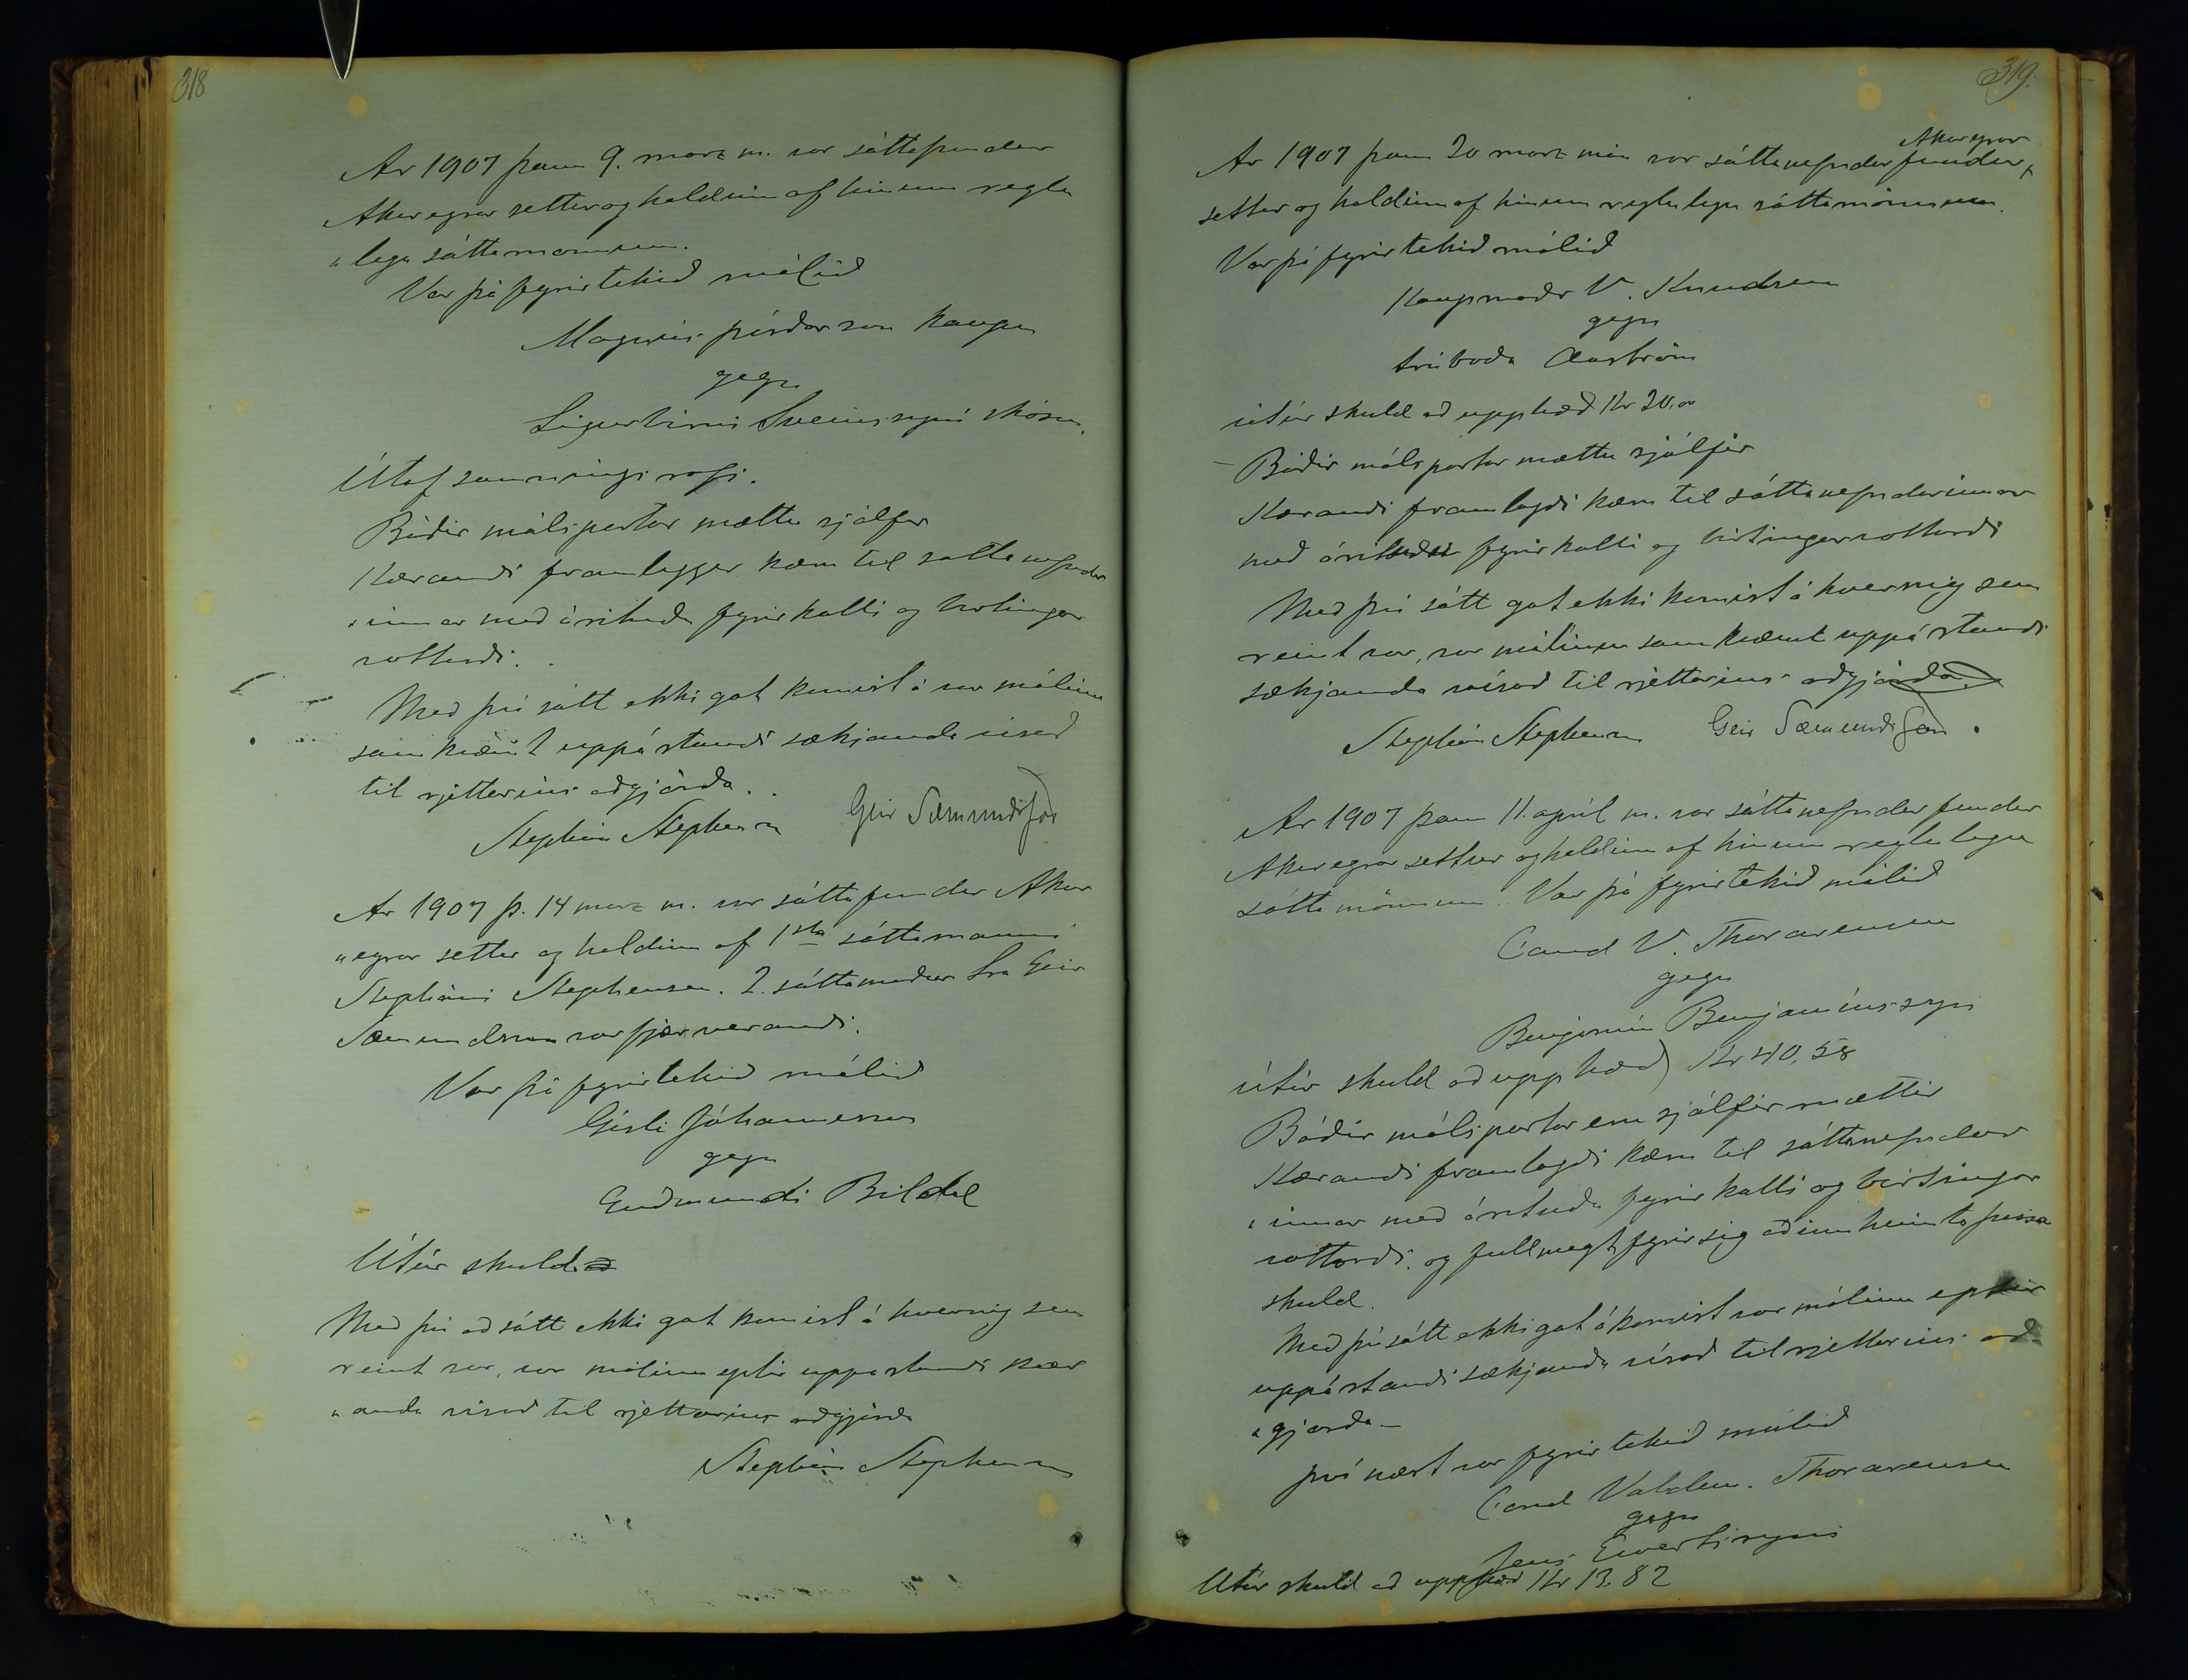 318
Ar 1907 þann 9. marz m. var sáttafundur
Akureyrar settur og haldinn af hinum reglu
„legu sáttamonnum.
Var þá fyrirtekið málið
Magnús þórðarson kaupm
gegn
Sigurbirni Sveinssyni skósm.
Útaf samningsrofi.
Báðir málspartar mættu sjálfir
Kærandi framleggur kæru til sáttanefndar
„innar með árituðu fyrirkalli og birtingar
vottorði.
Með þvi sátt ekki gat komist á var málinu
samkvæmt uppástandi sækjanda visað
til rjettarins aðgjörða.
Stephán Stephensen Geir Sæmundsson
Ar 1907 þ. 14 marz m. var sáttafundur Akur
„eyrar settur og haldinn af 1sta sáttamanni
Stepháni Stephensen. 2. sáttamaður Sra Geir
Sæmundsson var fjærverandi.
Var þá fyrirtekið málið
Gísli Jóhannesson
gegn
Guðmundi Bildal
Útúr skuld að
Með þvi að sátt ekki gat komist á hvernig sem
reint var, var málinu eptir uppástandi kær
„anda visað til rjettarins aðgjörða
Stephán Stephensen
319.
Ar 1907 þann 20 marz mán var sáttanefndar fundur
Akureyrar
settur og haldinn af hinum reglulegu sáttamönnum.
Var þá fyrirtekið málið
Kaupmaðr V. Knudsen
gegn
trúboða Aaström
útúr skuld að upphæð Kr 20.00
Báðir málspartar mættu sjálfir
Kærandi framlagði kæru til sáttanefndarinnar
með árituðu fyrirkalli og birtingarvottorði
Með þvi sátt gat ekki komist á hvernig sem
reint var, var málinu samkvæmt uppástandi
sækjanda visað til rjettarins aðgjörða.
Stephán Stephensen Geir Sæmundsson.
Ar 1907 þann 11. apríl m. var sáttanefndar fundur
Akureyrar settur og haldinn af hinum reglulegu
sáttamönnum. Var þá fyrirtekið málið
Cand V. Thorarensen
gegn
Benjamín Benjamínssyni
útúr skuld að upphæð Kr 40,58
Báðir málspartar eru sjálfir mættir
Kærandi framlagði kæru til sáttanefndar
„innar með árituðu fyrirkalli og birtingar
vottorði. og fullmagt fyrir sig að innheimta þessa
skuld.
Með þvi sátt ekki gat á komist var málinu eptir
uppástandi sækjanda vísað til rjettarins að
„gjörða –
því næst var fyrirtekið málið
Cand Valdem. Thorarensen
gegn
Jens Evertssyni
Útúr skuld að upphæð Kr 13.82